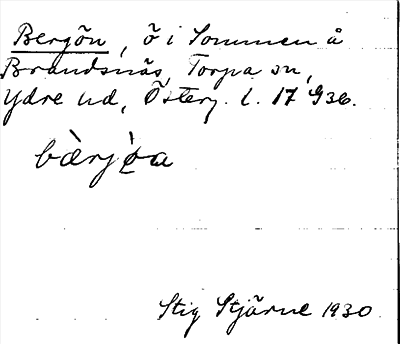 Bergön, ö i Sommen å
Brandsnäs, Torpa sn,
Ydre hd, Österg. l. 17 G36.
bæ̀rjòa
Stig Stjärne 1930